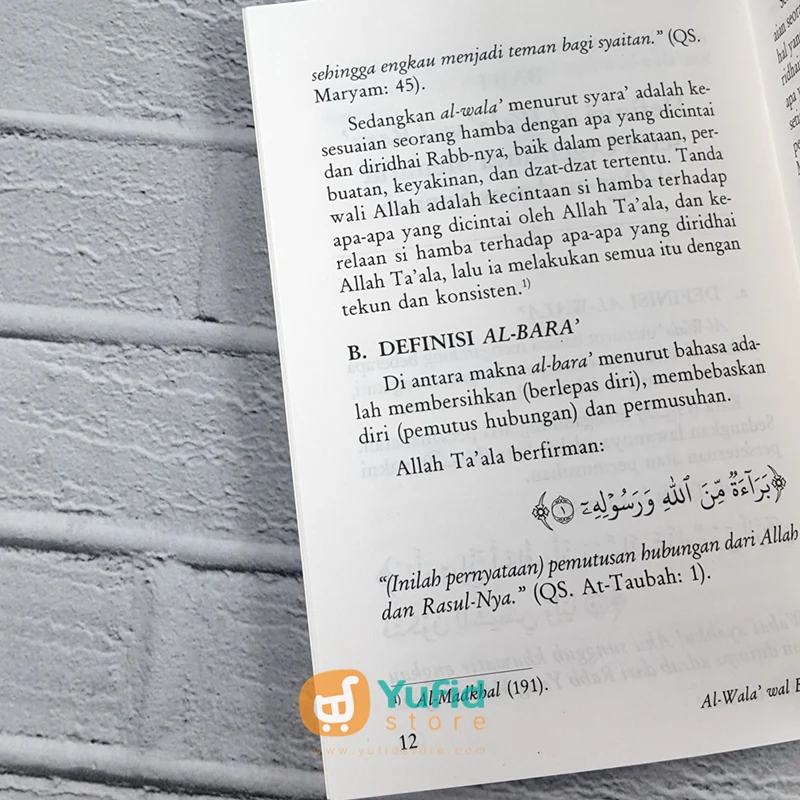 sehingga engkau menjadi teman bagi syaitan.” (QS.
Maryam: 45).
Sedangkan al-wala’ menurut syara’ adalah ke-
sesuaian seorang hamba dengan apa yang dicintai
dan diridhai Rabb-nya, baik dalam perkataan, per-
buatan, keyakinan, dan dzat-dzat tertentu. Tanda
wali Allah adalah kecintaan si hamba terhadap
apa-apa yang dicintai oleh Allah Ta’ala, dan ke-
relaan si hamba terhadap apa-apa yang diridhai
Allah Ta’ala, lalu ia melakukan semua itu dengan
tekun dan konsisten.¹⁾
B. DEFINISI AL-BARA’
Di antara makna al-bara’ menurut bahasa ada-
lah membersihkan (berlepas diri), membebaskan
diri (pemutus hubungan) dan permusuhan.
Allah Ta’ala berfirman:
﴿بَرَآءَةٌ مِّنَ ٱللَّهِ وَرَسُولِهِۦٓ ١﴾
“(Inilah pernyataan) pemutusan hubungan dari Allah
dan Rasul-Nya.” (QS. At-Taubah: 1).
¹⁾ Al-Madkhal (191).
Al-Wala’ wal
12
Yufid
store
www.yufidstore.com